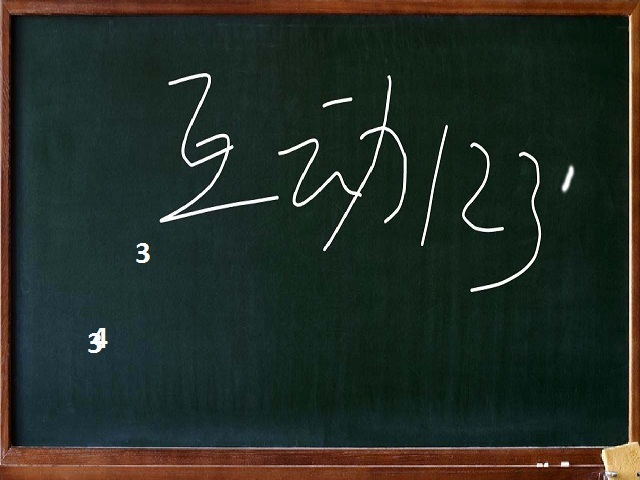 互动123
3
34